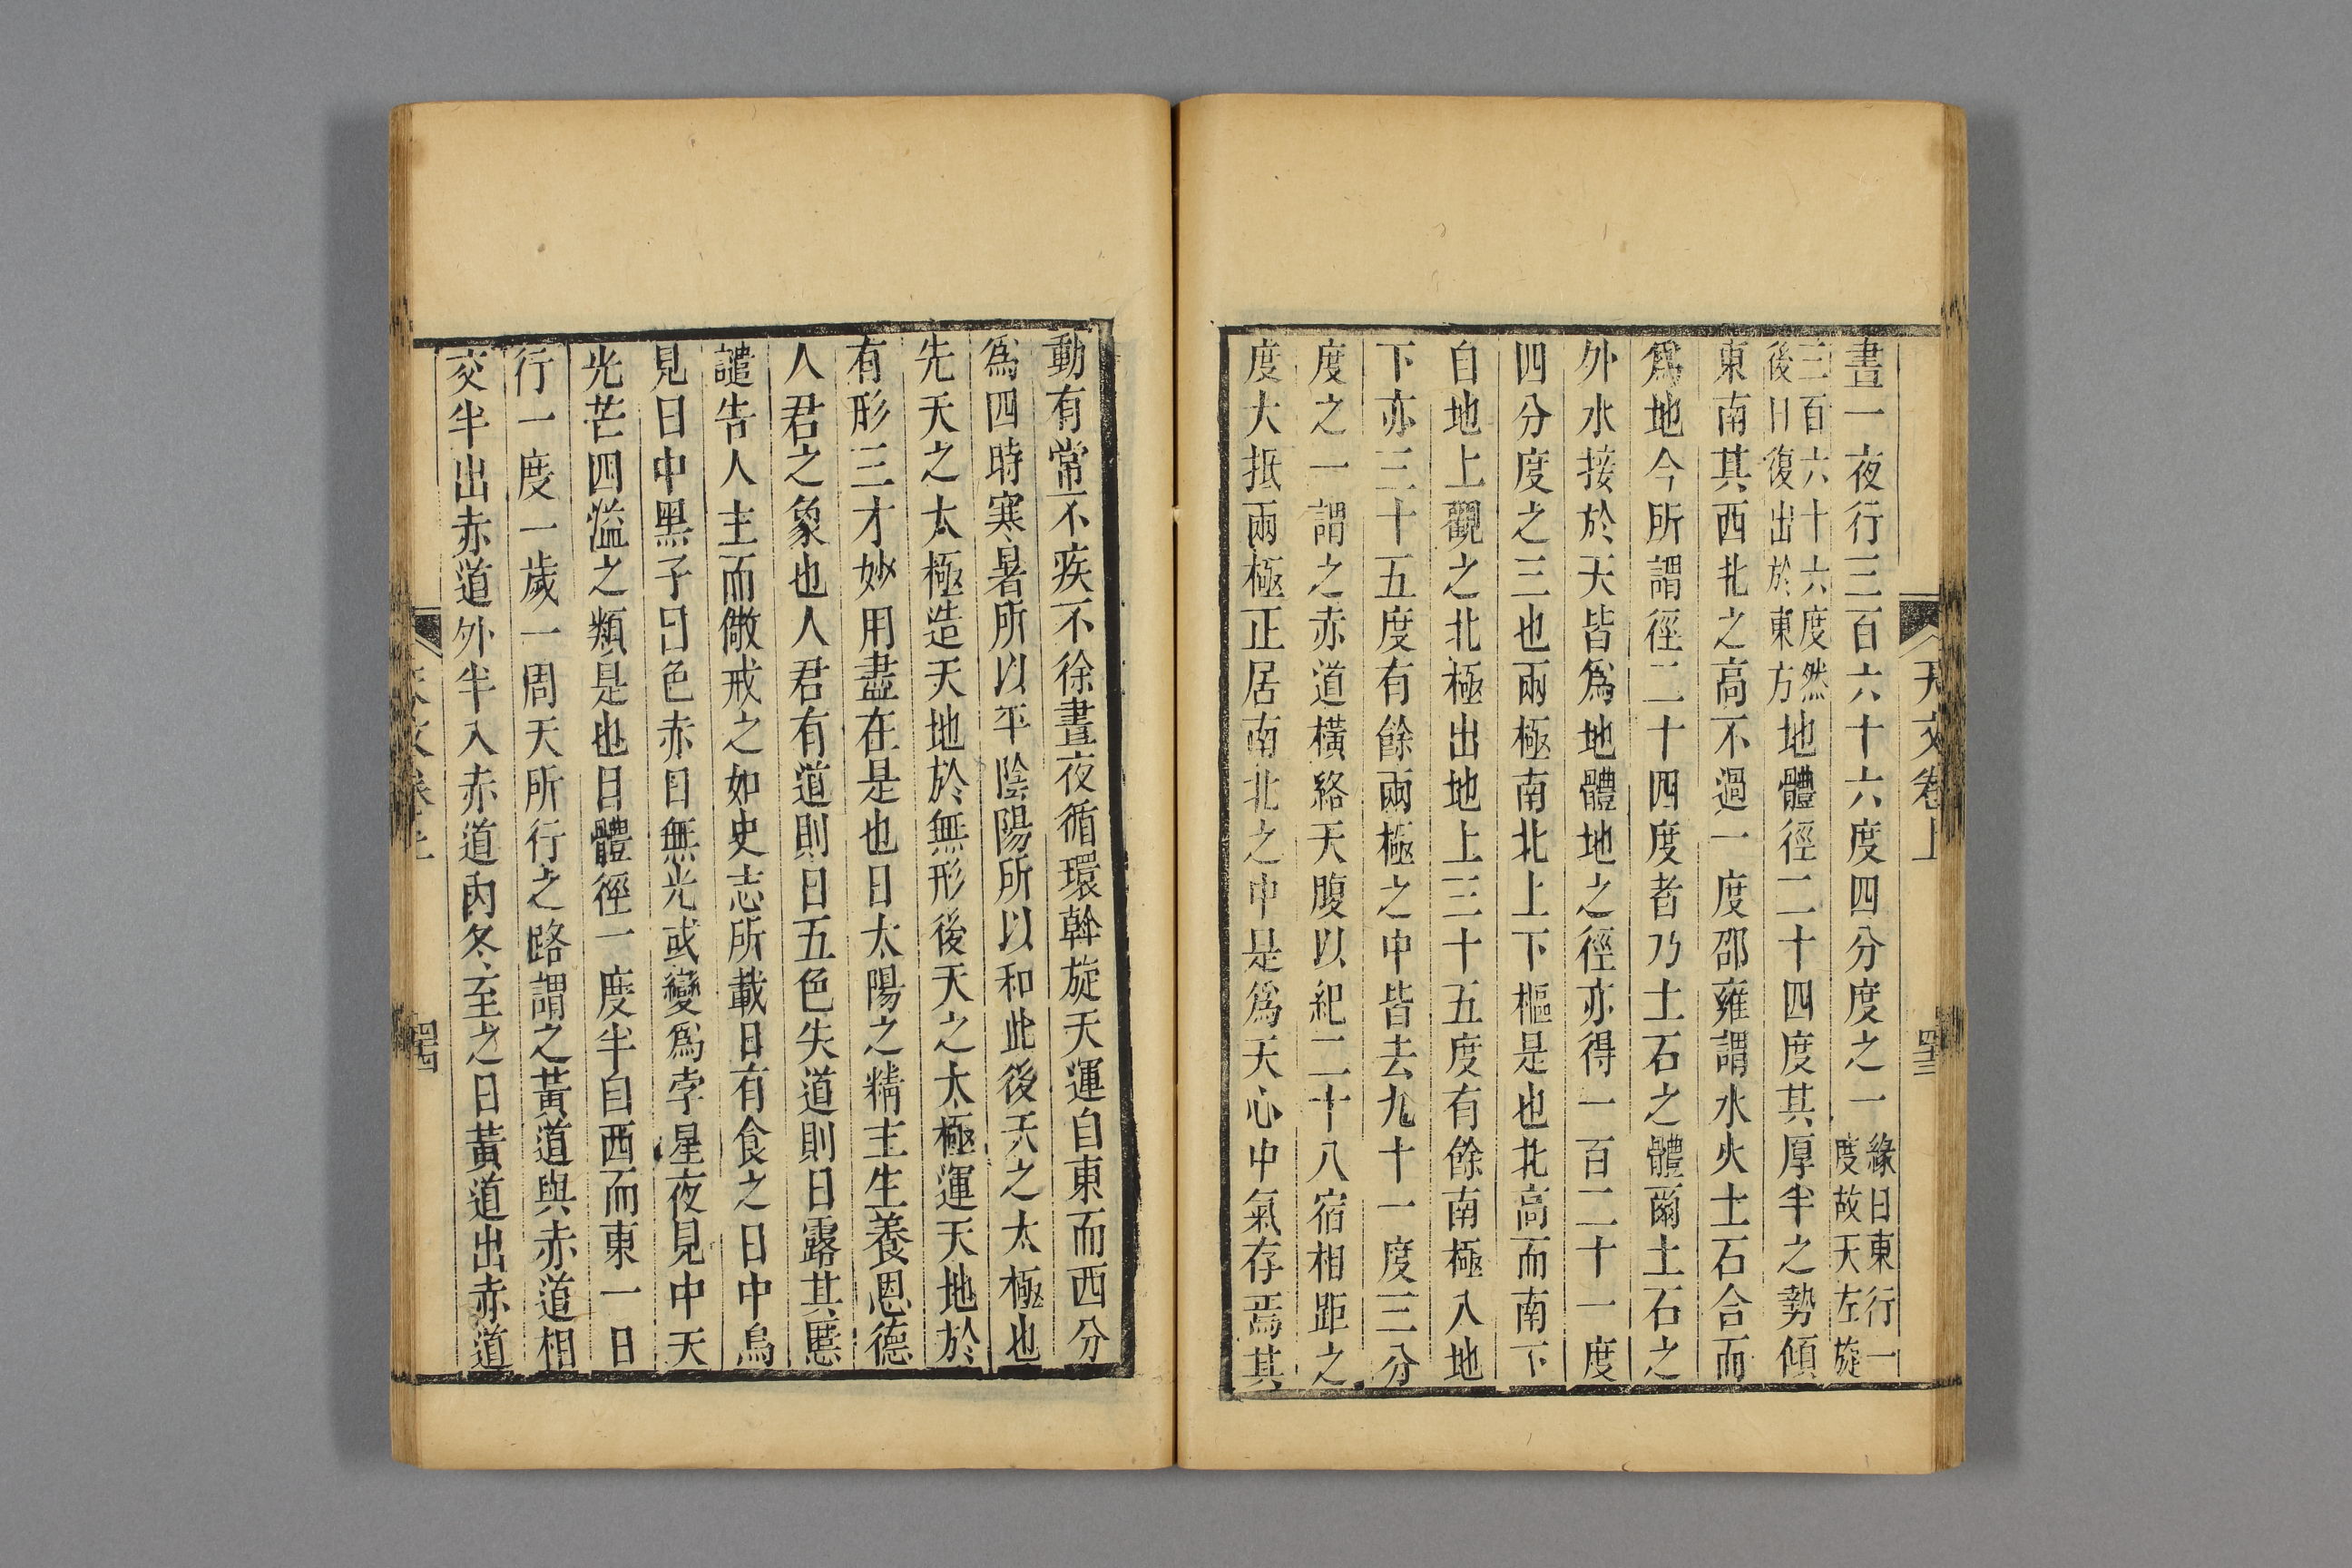 天文卷上
四三
晝一夜行三百六十六度四分度之一緣日東行一度故天左旋
三百六十六度然後日復出於東方地體徑二十四度其厚半之勢傾
東南其西北之高不過一度邵雍謂水火土石合而
爲地今所謂徑二十四度者乃土石之體爾土石之
外水接於天皆爲地體地之徑亦得一百二十一度
四分度之三也兩極南北上下樞是也北高而南下
自地上觀之北極出地上三十五度有餘南極入地
下亦三十五度有餘兩極之中皆去九十一度三分
度之一謂之赤道橫絡天腹以紀二十八宿相距之
度大抵兩極正居南北之中是爲天心中氣存焉其
動有常不疾不徐晝夜循環斡旋天運自東而西分
爲四時寒暑所以平陰陽所以和此後天之太極也
先天之太極造天地於無形後天之太極運天地於
有形三才妙用盡在是也日太陽之精主生養恩德
人君之象也人君有道則日五色失道則日露其慝
譴告人主而儆戒之如史志所載日有食之日中烏
見日中黑子日色赤日無光或變爲孛星夜見中天
光芒四溢之類是也日體徑一度半自西而東一日
行一度一歲一周天所行之路謂之黃道與赤道相
交半出赤道外半入赤道內冬至之日黃道出赤道
四四